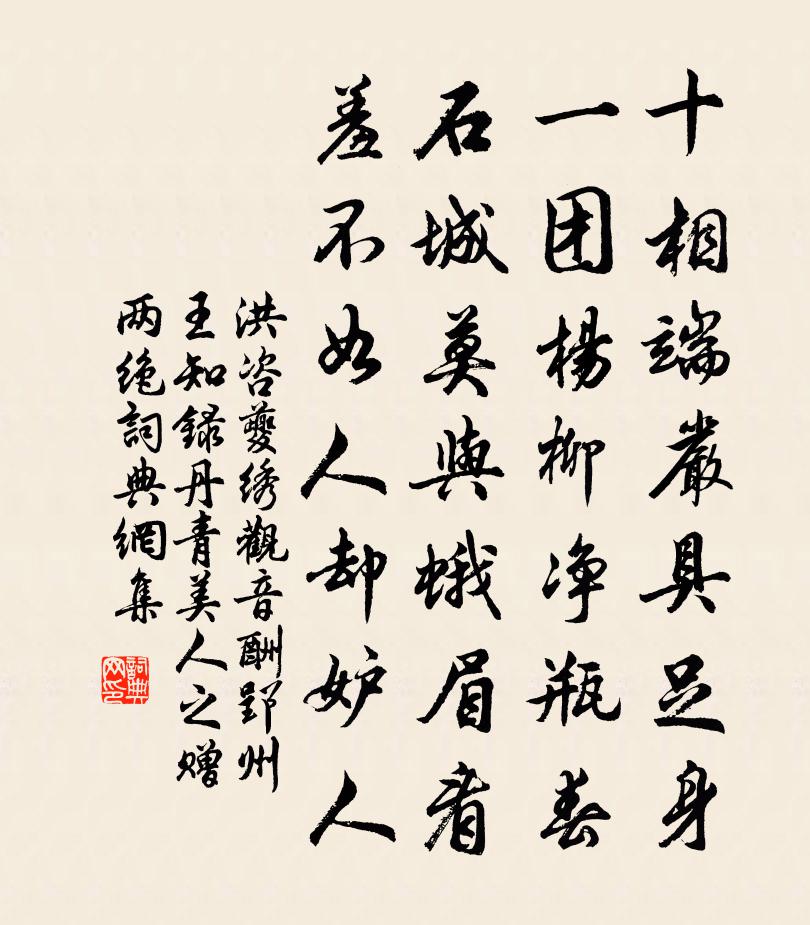 十相端嚴具足身
一团楊柳净瓶春
石城莫與蛾眉看
羞不如人却妒人
洪咨夔绣觀音酬郢州
王知録丹青美人之赠
两绝詞典網集
詞典网印